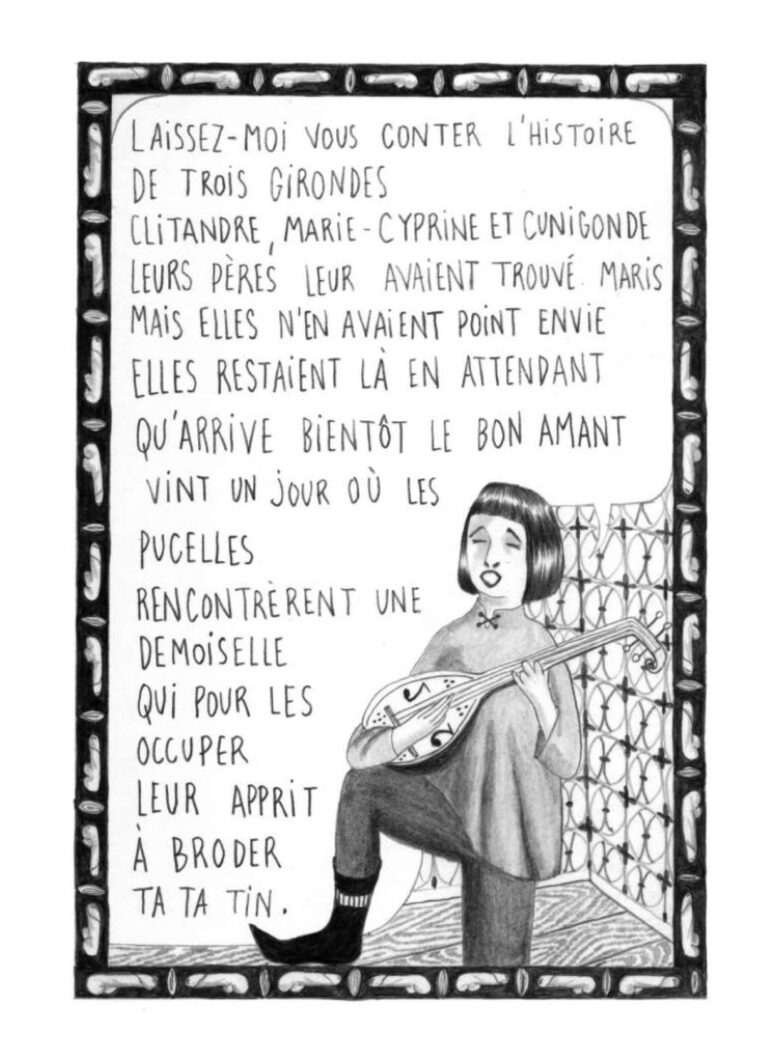 LAISSEZ-MOI VOUS CONTER L'HISTOIRE
DE TROIS GIRONDES
CLITANDRE, MARIE-CYPRINE ET CUNIGONDE
LEURS PÈRES LEUR AVAIENT TROUVÉ MARIS
MAIS ELLES N'EN AVAIENT POINT ENVIE
ELLES RESTAIENT LÀ EN ATTENDANT
QU'ARRIVE BIENTÔT LE BON AMANT
VINT UN JOUR OÙ LES
PUCELLES
RENCONTRÈRENT UNE
DEMOISELLE
QUI POUR LES
OCCUPER
LEUR APPRIT
À BRODER
TA TA TIN.